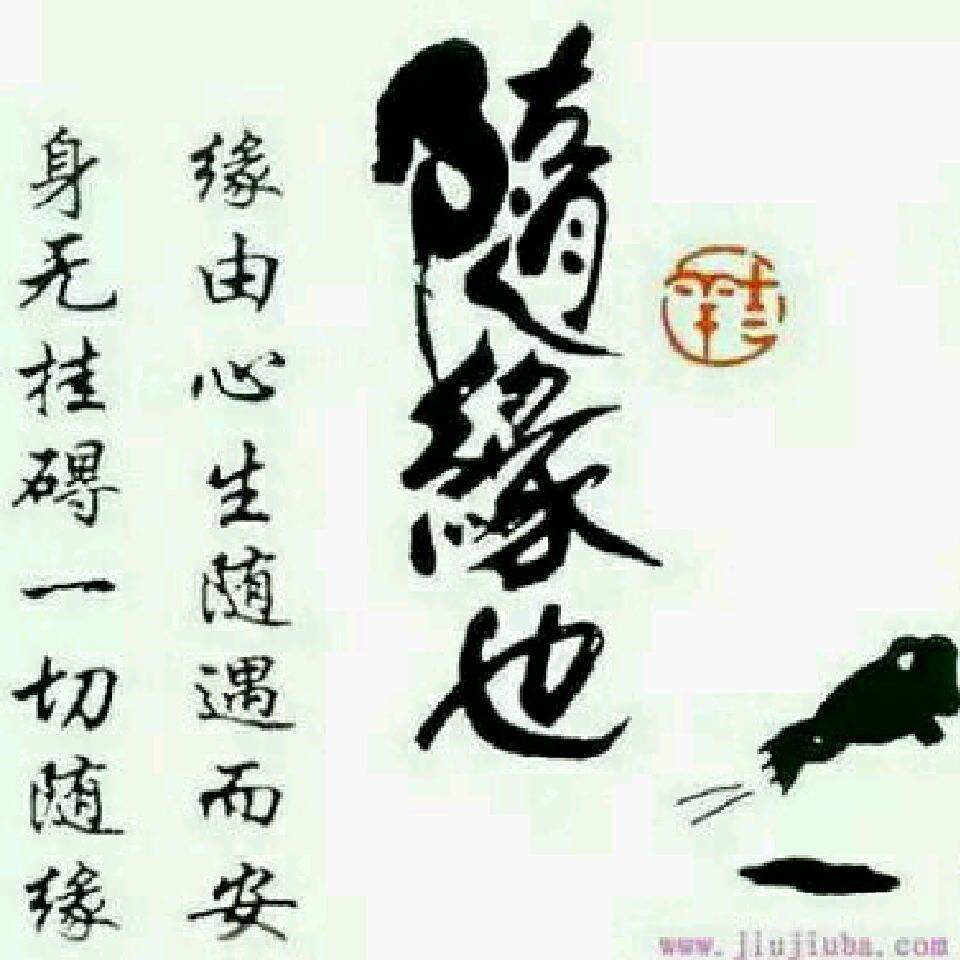 隨緣也
缘由心生随遇而安
身无挂碍一切随缘
www.jiujiuba.com